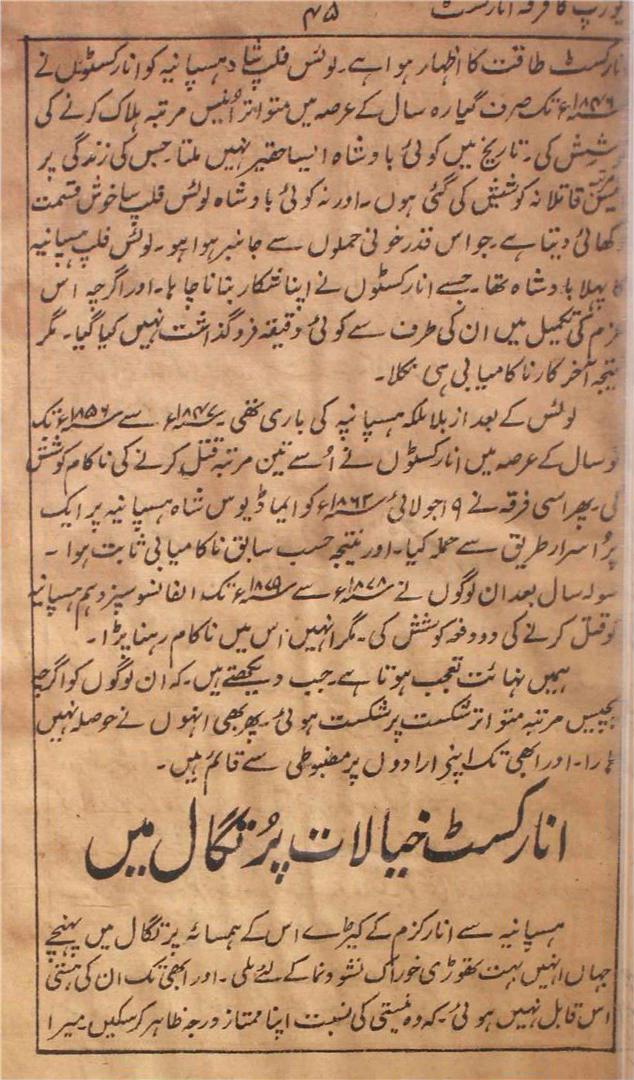 یورپ کا فرقہ انارکسٹ ۴۵
انارکسٹ طاقت کا اظہار ہوا ہے۔ لوئس فلپ شاہ ہسپانیہ کو انارکسٹوں نے
۱۸۴۶ء تک صرف گیارہ سال کے عرصہ میں متواتر اُنیس مرتبہ ہلاک کرنے کی
کوشش کی۔ تاریخ میں کوئی بادشاہ ایسا حقیر نہیں ملتا۔ جس کی زندگی پر
قاتلانہ کوششیں کی گئی ہوں۔ اور نہ کوئی بادشاہ لوئس فلپ سا خوش قسمت
دکھائی دیتا ہے۔ جو اس قدر خونی حملوں سے جانبر ہوا ہو۔ لوئس فلپ ہسپانیہ
کا پہلا بادشاہ تھا۔ جسے انارکسٹوں نے اپنا شکار بنانا چاہا۔ اور اگرچہ اس
عزم کی تکمیل میں ان کی طرف سے کوئی دقیقہ فروگذاشت نہیں کیا گیا۔ مگر
نتیجہ آخر کار ناکامیابی ہی نکلا۔
لوئس کے بعد ازبلا ملکہ ہسپانیہ کی باری تھی۔ ۱۸۴۷ء سے ۱۸۵۶ء تک
نو سال کے عرصہ میں انارکسٹوں نے اُسے تین مرتبہ قتل کرنے کی ناکام کوشش
کی۔ پھر اسی فرقہ نے ۱۹ جولائی ۱۸۶۲ء کو ایماڈیوس شاہ ہسپانیہ پر ایک
پُر اسرار طریق سے حملہ کیا۔ اور نتیجہ حسب سابق ناکامیابی ثابت ہوا۔
سولہ سال بعد ان لوگوں نے ۱۸۷۸ء سے ۱۸۷۹ء تک الفانسو سیزدہم ہسپانیہ
کو قتل کرنے کی دو دفعہ کوشش کی۔ مگر انہیں اس میں ناکام رہنا پڑا۔
ہمیں نہائت تعجب ہوتا ہے۔ جب دیکھتے ہیں۔ کہ ان لوگوں کو اگرچہ
پچیس مرتبہ متواتر شکست پر شکست ہوئی۔ پھر بھی انہوں نے حوصلہ نہیں
ہارا۔ اور ابھی تک اپنی ارادوں پر مضبوطی سے قائم ہیں۔
انارکسٹ خیالات پُرتگال میں
ہسپانیہ سے انارکزم کے کیڑے اس کے ہمسائہ پرتگال میں پہنچے
جہاں انہیں بہت تھوڑی خوراک نشوونما کے لئے ملی۔ اور ابھی تک ان کی ہستی
اس قابل نہیں ہوئی۔ کہ وہ نیستی کی نسبت اپنا ممتاز درجہ ظاہر کر سکیں۔ میرا